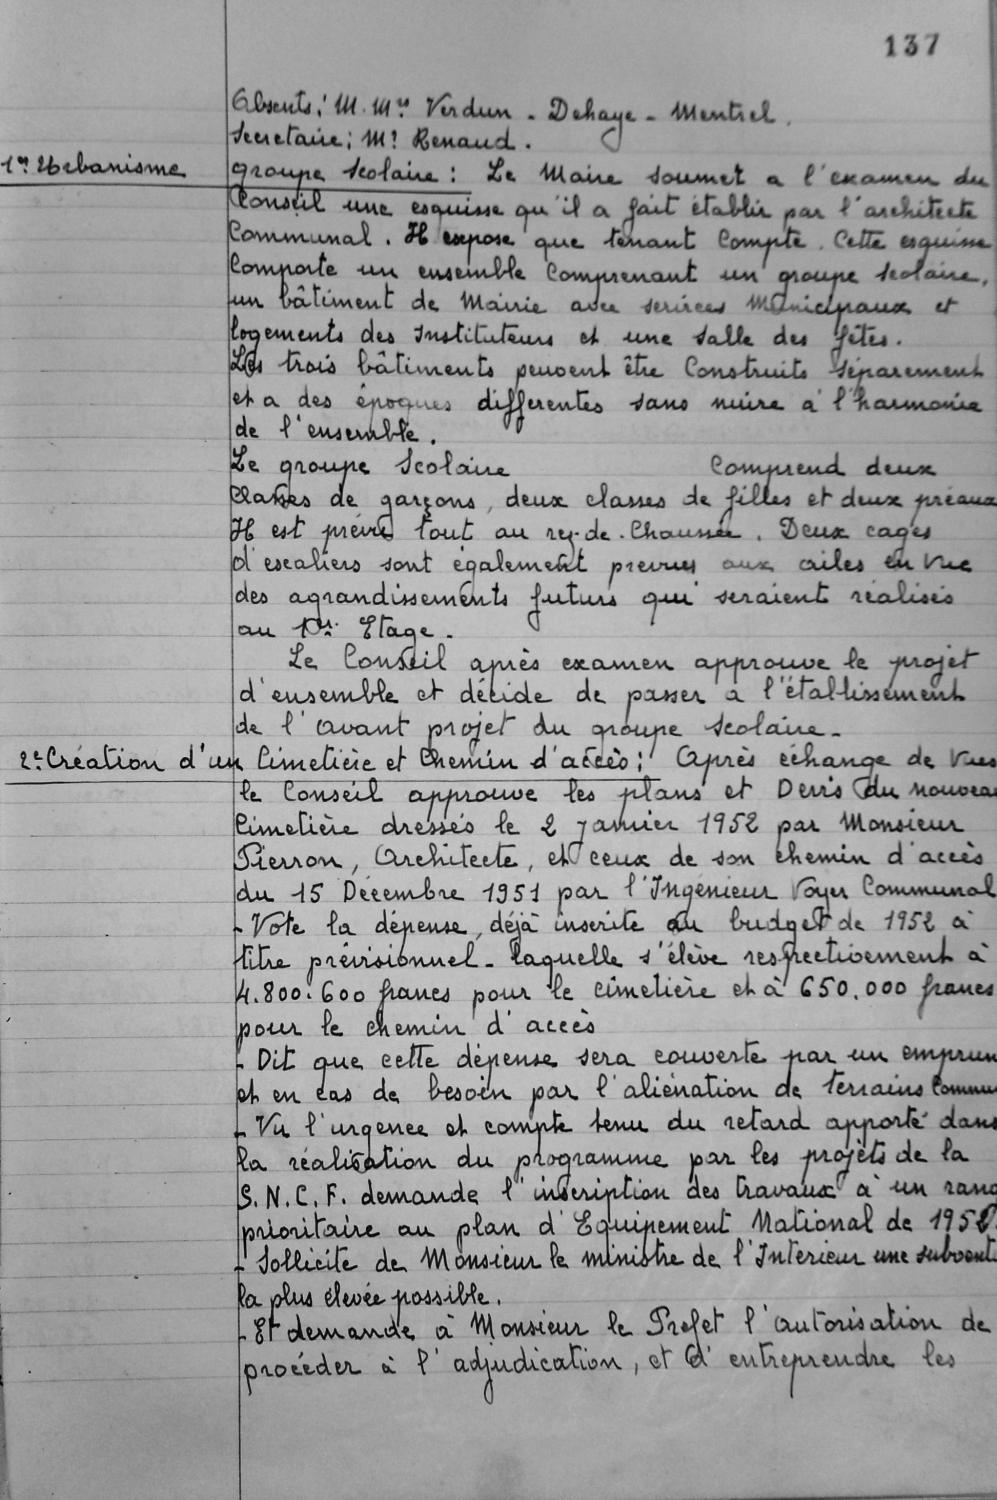 137
Absents: M.Mrs Verdun - Dehaye - Mentrel.
Secretaire: Mr Renaud.
1er Urbanisme groupe scolaire : Le Maire soumet a l'examen du
Conseil une esquisse qu'il a fait établir par l'architecte
Communal. Il expose que tenant compte. Cette esquisse
Comporte un ensemble Comprenant un groupe scolaire,
un bâtiment de Mairie avec serivces Municipaux et
logements des Instituteurs et une salle des fêtes.
Les trois bâtiments peuvent être Construits séparement
et a des époques differentes sans nuire à l'harmonie
de l'ensemble.
Le groupe Scolaire Comprend deux
classes de garçons, deux classes de filles et deux préaux
Il est prévu tout au rez-de-Chaussée. Deux cages
d'escaliers sont également prevues aux ailes en vue
des agrandissements futurs qui seraient réalisés
au 1er Etage.
Le Conseil après examen approuve le projet
d'ensemble et décide de passer a l'établissement
de l'avant projet du groupe scolaire.
2e Création d'un Cimetière et Chemin d'accès: Après échange de vues
le Conseil approuve les plans et Devis du nouveau
Cimetière dressés le 2 janvier 1952 par Monsieur
Pierron, Architecte, et ceux de son chemin d'accès
du 15 Décembre 1951 par l'Ingénieur Voyer Communal
- Vote la dépense, déjà inscrite au budget de 1952 à
titre prévisionnel - laquelle s'élève respectivement à
4.800.600 francs pour le cimetière et à 650.000 francs
pour le chemin d'accès
- Dit que cette dépense sera couverte par un emprun
et en cas de besoin par l'aliénation de terrains Commu
- Vu l'urgence et compte tenu du retard apporté dans
la réalisation du programme par les projets de la
S.N.C.F. demande l'inscription des travaux à un rang
prioritaire au plan d'Equipement National de 1952.
- Sollicite de Monsieur le ministre de l'Interieur une subventi
la plus élevée possible.
- Et demande à Monsieur le Préfet l'autorisation de
procéder à l'adjudication, et d'entreprendre les